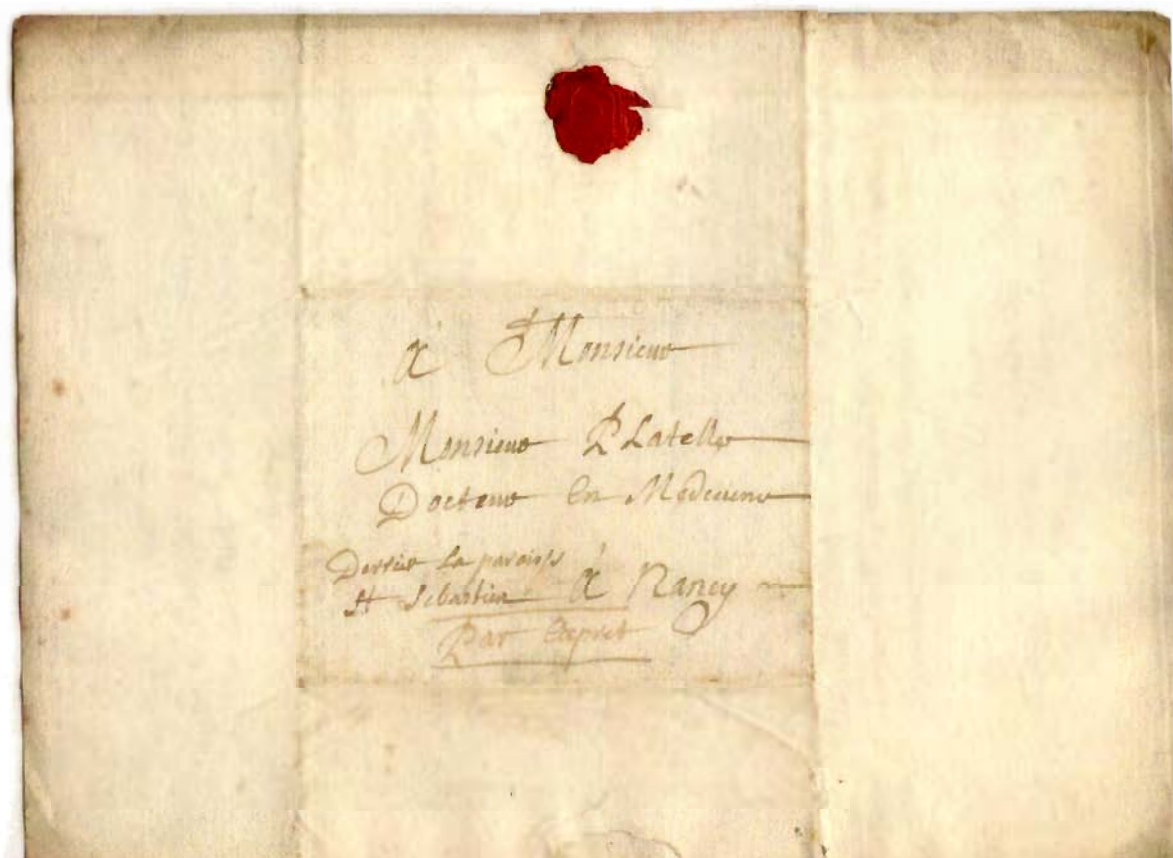 à Monsieur
Monsieur Platelle
Docteur En Medecine
Derrier La paroisse
St Sebastien à Nancy
Par Exprès